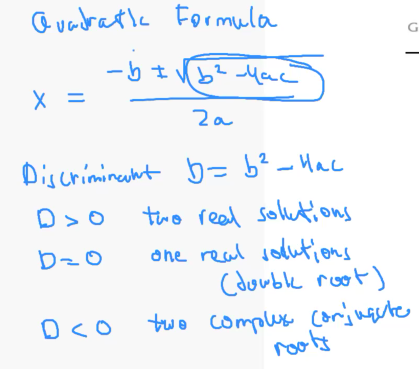 Quadratic Formula
G
x = -b ± √b² - 4ac
2a
Discriminant D = b² - 4ac
D > 0 two real solutions
D = 0 one real solutions
(double root)
D < 0 two complex conjugate
roots